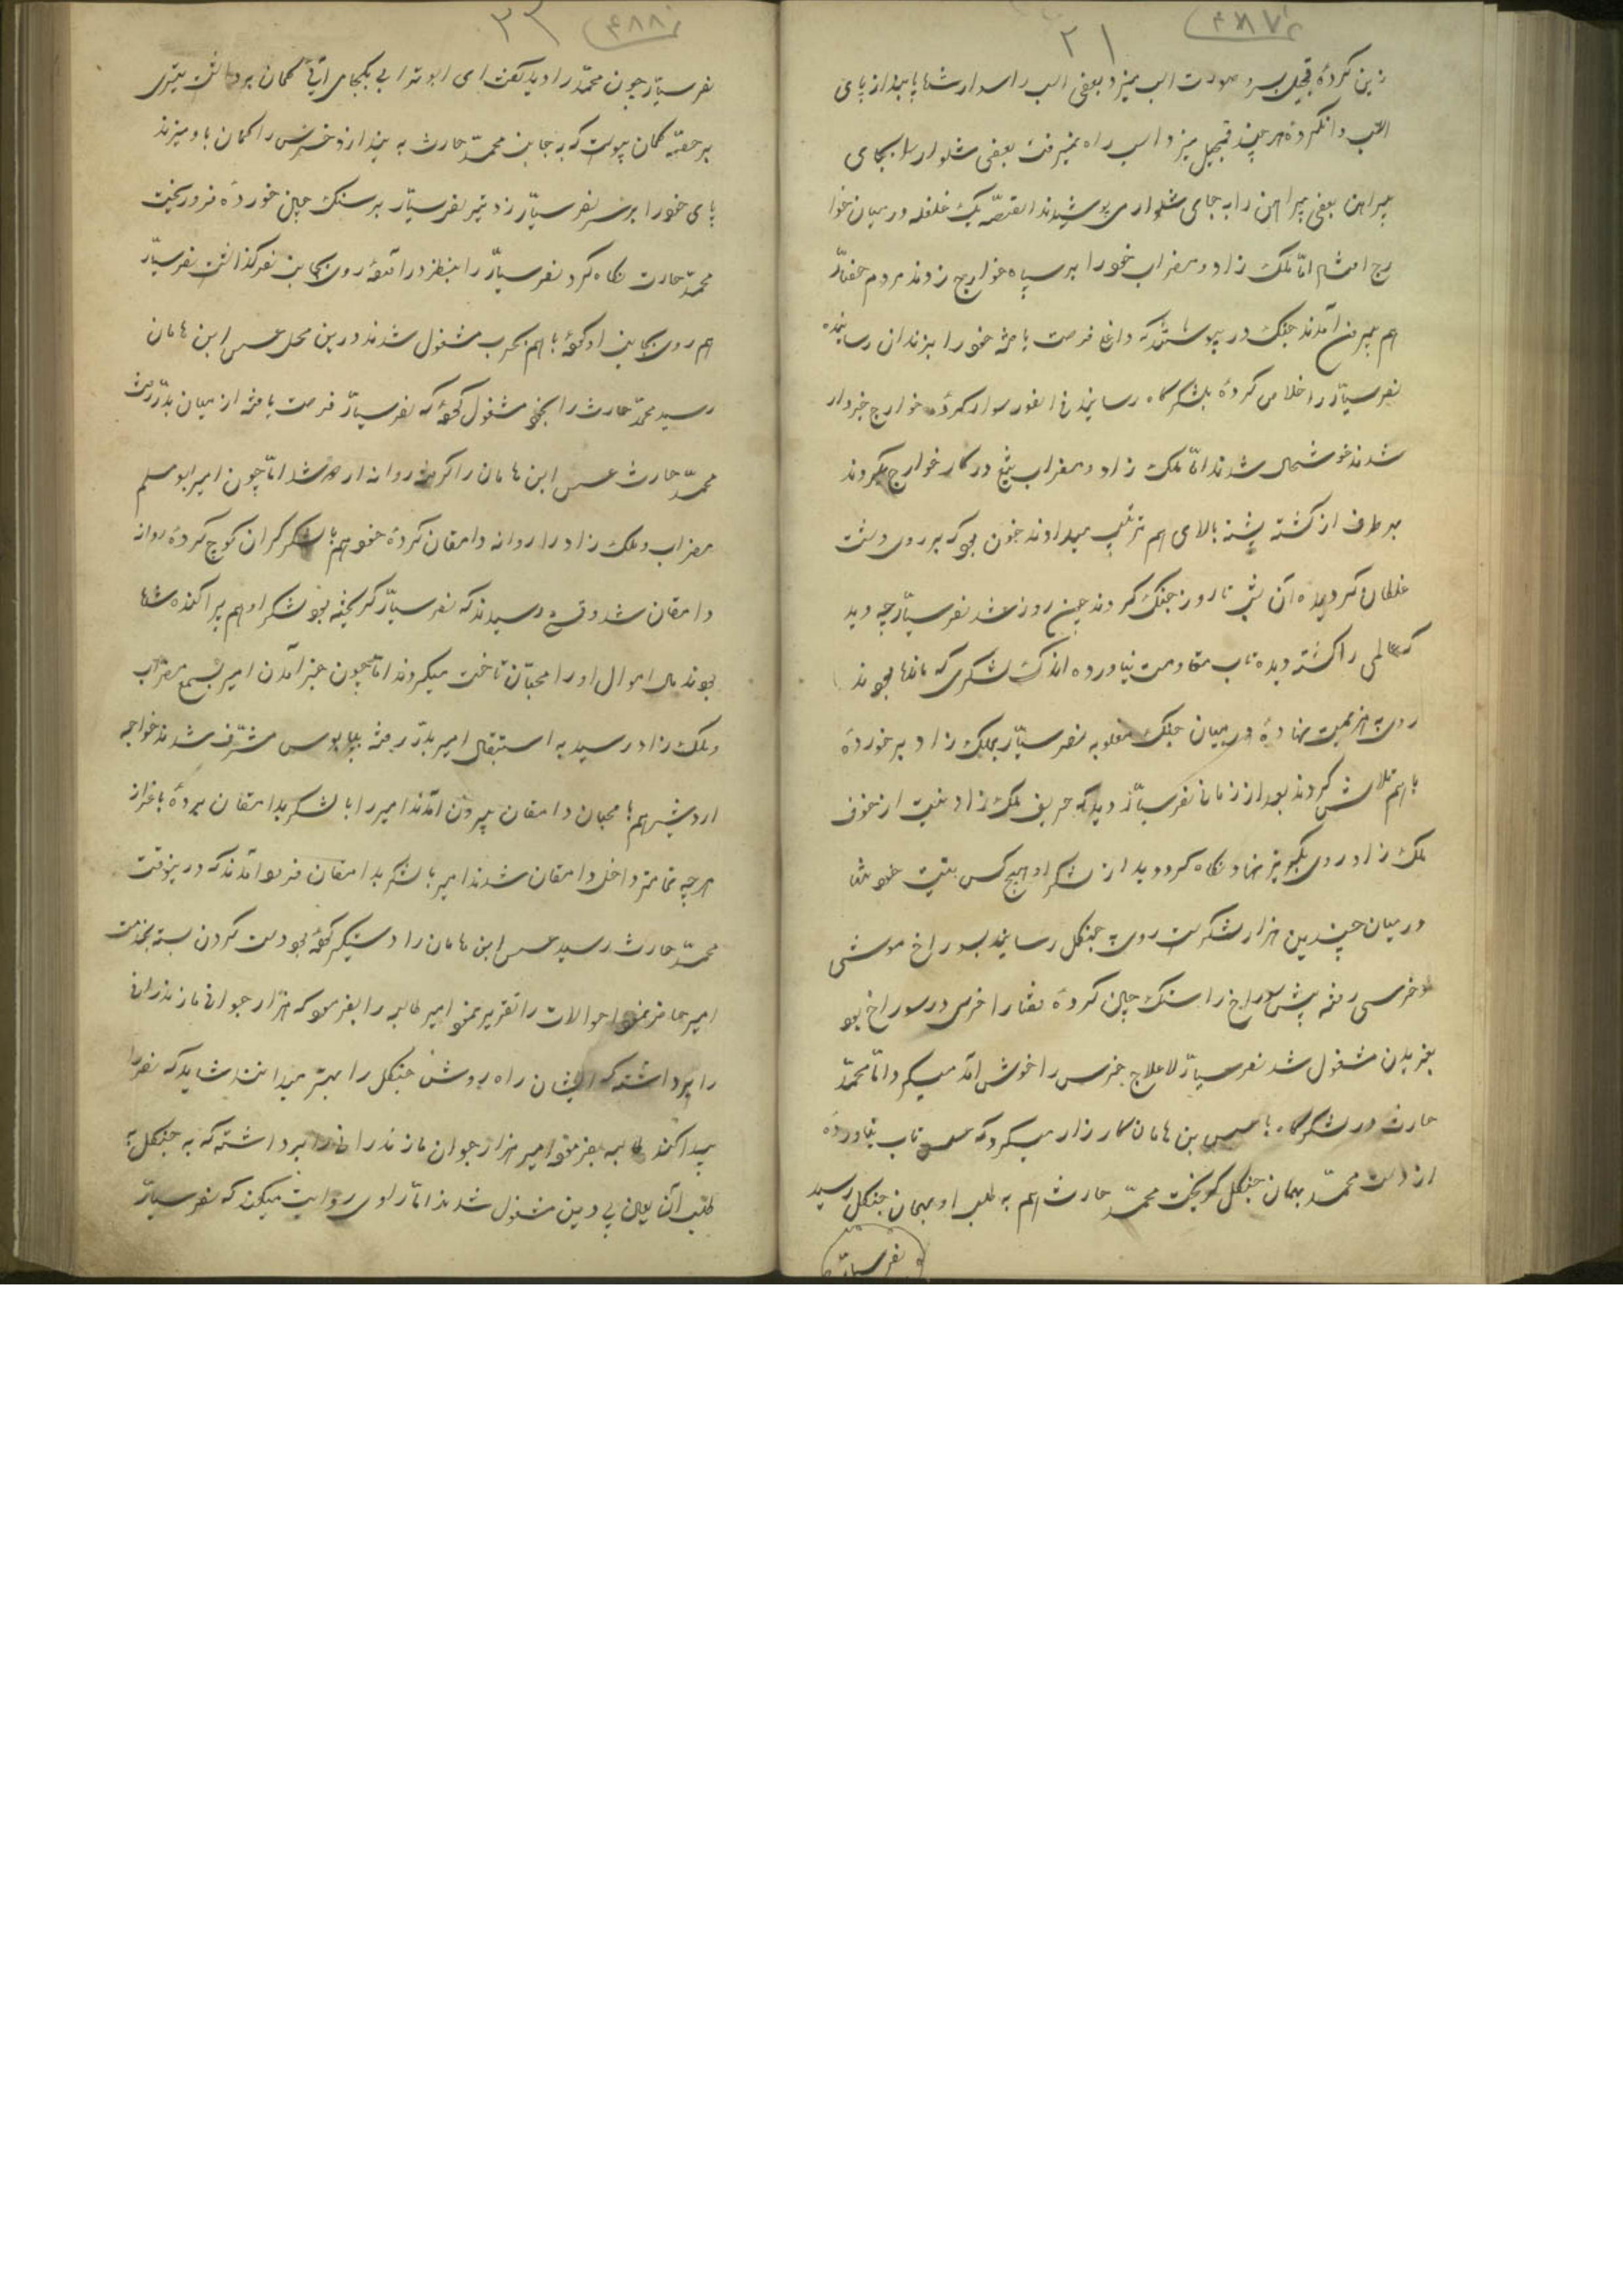 ۴۸۷
۲۱
زین کرده قمچیل بسر و صورت اسب میزد بعضی اسب را سوار شده پابند از پای
اسب وانکرده هر چند قمچیل میزد اسب راه نمیرفت بعضی شلوار را بجای
پیراهن بعضی پیراهن را به جای شلوار می پوشیدند القصه یک غلغله در میان خوا
رج افتاد اما ملک زاد و مضراب خود را بر سپاه خوارج زدند مردم
هم بیرون آمدند جنگ در پیوستند که فرصت یافته خود را بزندان رسانیده
نفر سیار را خلاص کرده بلشکرگاه رسانیدند فی الفور سوار کرده خوارج خبردار
شدند خوشحال شدند اما ملک زاد و مضراب تیغ در کار خوارج میکردند
هر طرف از کشته پشته بالای هم ترتیب میدادند خون بود که بر روی دشت
غلطان گردیده آن شب تا روز جنگ کردند چون روز شد نفر سیار چه دید
که عالمی را کشته دیده تاب مقاومت نیاورده اندک لشکری که مانده بودند
روی به هزیمت نهاده در میان جنگ مغلوبه نفر سیار بملک زاد برخورده
با هم تلاش کردند بعد از زمانی نفر سیار دید که حریف ملک زاد نیست از خوف
ملک زاد روی بگریز نهاد نگاه کرد دید از لشکر او هیچ کس نیست خود تنها
در میان چندین هزار لشکر است روی به جنگل رسانید بسوراخ موشی
و خرسی رفته پیش سوراخ را سنگ چین کرده قضا را خرسی در سوراخ بود
بغریدن مشغول شد نفر سیار لاعلاج خرس را خوش آمد میکرد اما محمد
حارث در لشکرگاه با عسس بن هامان کارزار میکرد که عسس تاب نیاورده
از دست محمد بهمان جنگل گریخت محمد حارث هم به طلب او بهمان جنگل رسید
نفر سیار
۴۸۸
۲۲
نفر سیار چون محمد را دید گفت ای ابوترابی بکجا می آیی کمان برداشت تیری
بر حقه کمان پیوست که به جانب محمد حارث به بیندازد خرس را گمان باو میزند
پای خود را بر سر نفر سیار زد تیر نفر سیار بر سنگ چین خورده فرو ریخت
محمد حارث نگاه کرد نفر سیار را بنظر درآمده روی بجانب نفر گذاشت نفر سیار
هم روی بجانب او کرده با هم بحرب مشغول شدند درین محل عسس ابن هامان
رسید محمد حارث را بخود مشغول کرده که نفر سیار فرصت یافته از میان بدر رفت
محمد حارث عسس ابن هامان را گرفته روانه اردو شد اما چون امیر ابومسلم
مضراب و ملک زاد را روانه دامغان کرده خود هم با لشکر گران کوچ کرده روانه
دامغان شد وقتی رسیدند که نفر سیار گریخته بود لشکر او هم پراکنده شده
بودند مال اموال او را محبان تاخت میکردند اما چون خبر آمدن امیر بسمع مضراب
و ملک زاد رسید به استقبال امیر بدر رفته بپابوس مشرف شدند خواجه
اردشیر هم با محبان دامغان بیرون آمدند امیر را با لشکر بدامغان برده باعزاز
هر چه تمامتر داخل دامغان شدند امیر با لشکر بدامغان فرود آمدند که درینوقت
محمد حارث رسید عسس ابن هامان را دستگیر کرده بود دست گردن بسته بخدمت
امیر حاضر نمود احوالات را تقریر نمود امیر طالبه را بفرمود که هزار جوانی مازندرانی
را برداشته که ایشان راه روش جنگل را بهتر میدانند شاید که نفر را
پیدا کند طالبه بفرموده امیر هزار جوان مازندرانی را برداشته که به جنگل به
طلب آن لعین بی دین مشغول شدند اما راوی روایت میکند که نفر سیار